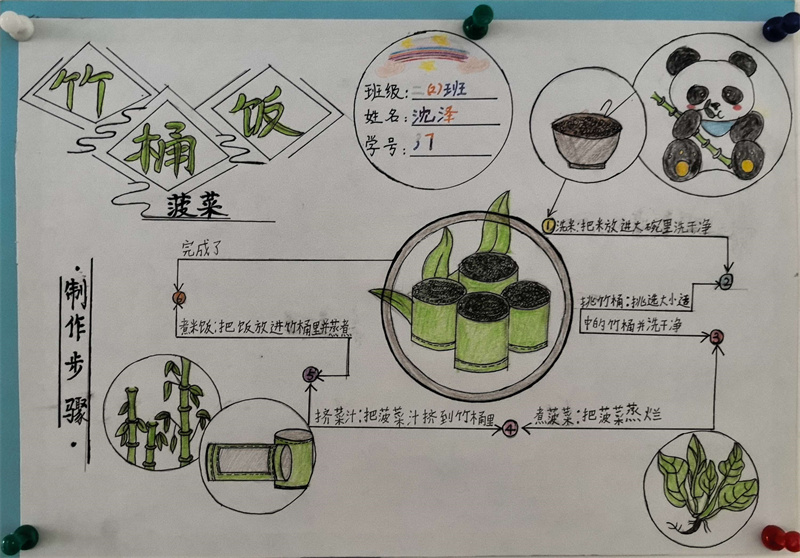 竹桶饭
菠菜
班级:二(2)班
姓名:沈泽
学号:37
制作步骤
①洗米:把米放进大碗里洗干净
②
挑竹桶:挑选大小适
中的竹桶并洗干净
③
煮菠菜:把菠菜蒸烂
④
挤菜汁:把菠菜汁挤到竹桶里
⑤
煮米饭:把饭放进竹桶里并蒸煮
⑥
完成了